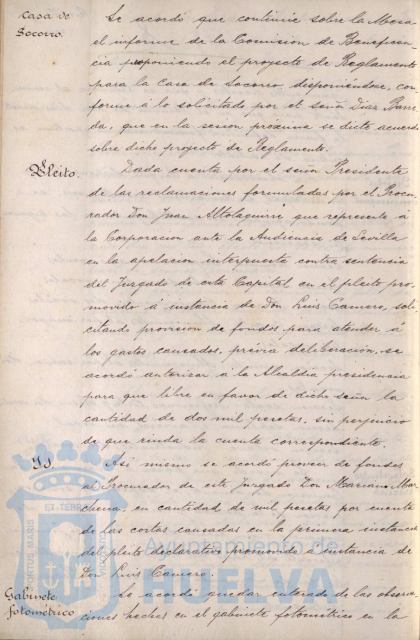 Casa de
Socorro.
Se acordó que continúe sobre la Mesa
el informe de la Comision de Beneficen
cia proponiendo el proyecto de Reglamento
para la Casa de Socorro, disponiéndose, con
forme á lo solicitado por el señor Diaz Barre
da, que en la sesion próxima se dicte acuerdo
sobre dicho proyecto de Reglamento.
Pleito.
Dada cuenta por el señor Presidente
de las reclamaciones formuladas por el Procu
rador Don Juan Altolaguirre que representa á
la Corporacion ante la Audiencia de Sevilla
en la apelacion interpuesta contra sentencia
del Juzgado de esta Capital en el pleito pro
movido á instancia de Don Luis Camero, soli
citando provision de fondos para atender á
los gastos causados, prévia deliberación, se
acordó autorizar á la Alcaldia presidencia
para que libre en favor de dicho señor la
cantidad de dos mil pesetas, sin perjuicio
de que rinda la cuenta correspondiente.
Id
Asi mismo se acordó proveer de fondos
al Procurador de este Juzgado Don Mariano Mar
chena, en cantidad de mil pesetas por cuenta
de las costas causadas en la primera instancia
del pleito declarativo promovido á instancia de
Don Luis Camero.
Gabinete
fotométrico
Se acordó quedar enterado de las observa
ciones hechas en el gabinete fotométrico en la
PORTUS MARIS
ET TERRÆ
Ayuntamiento de
HUELVA